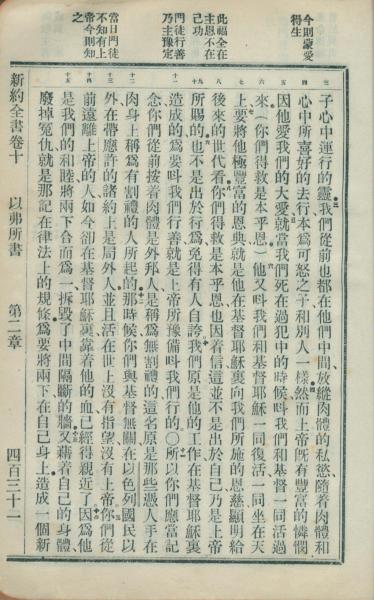 今則蒙愛
得生
此福全在
主恩不在
己功
門徒行善
乃主豫定
當日門徒
不知有上
帝今則知
之
三 四 五 六 七 八 九 十 十一 十二 十三 十四 十五
子心中運行的靈我們從前也都在他們中間放縱肉體的私慾隨着肉體和
心中所喜好的去行本爲可怒之子和別人一樣然而上帝旣有豐富的憐憫
因他愛我們的大愛就當我們死在過犯中的時候叫我們和基督一同活過
來（你們得救是本乎恩）他又叫我們和基督耶穌一同復活一同坐在天
上要將他極豐富的恩典就是他在基督耶穌裏向我們所施的恩慈顯明給
後來的世代看你們得救是本乎恩也因着信這並不是出於自己乃是上帝
所賜的也不是出於行爲免得有人自誇我們原是他的工作在基督耶穌裏
造成的爲要叫我們行善就是上帝所豫備叫我們行的〇所以你們應當記
念你們從前按着肉體是外邦人是稱爲無割禮的這名原是那些憑人手在
肉身上稱爲有割禮的人所起的那時候你們與基督無關在以色列國民以
外在帶應許的諸約上是局外人並且活在世上沒有指望沒有上帝你們從
前遠離上帝的人如今卻在基督耶穌裏靠着他的血已經得親近了因爲他
是我們的和睦將兩下合而爲一拆毀了中間隔斷的牆又藉着自己的身體
廢掉冤仇就是那記在律法上的規條爲要將兩下在自己身上造成一個新
新約全書卷十 以弗所書 第二章 四百三十一